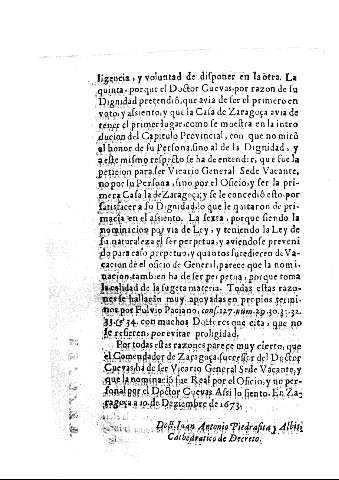 ligencia, y voluntad de disponer en la otra. La
quinta, porque el Doctor Cuevas, por razon de su
Dignidad pretendiò, que avia de ser el primero en
voto, y assiento, y que la Casa de Zaragoça avia de
tener el primer lugar, como se muestra en la intro
duccion del Capitulo Provincial, con que no mirò
al honor de su Persona, sino al de la Dignidad, y
a este mismo respecto se ha de entender, que fue la
peticion para ser Vicario General Sede Vacante,
no por su Persona, sino por el Oficio, y ser la pri-
mera Casa la de Zaragoça; y se le concediò esto por
satisfacer a su Dignidad, lo que le quitaron de pri-
macia en el assiento. La sexta, porque siendo la
nominacion por via de Ley, y teniendo la Ley de
su naturaleza el ser perpetua, y aviendose preveni
do para caso perpetuo, y quantos sucedieren de Va-
cacion de el oficio de General, parece que la nomi-
nacion tambien ha de ser perpetua, porque toma
la calidad de la sugeta materia. Todas estas razo-
nes se hallaràn muy apoyadas en propios termi-
nos por Fulvio Paciano, cons. 127. num. 29. 30. 31. 32.
33. & 34. con muchos Doctores que cita, que no
se refieren, por evitar proligidad.
Por todas estas razones parece muy cierto, que
el Comendador de Zaragoça, sucessor del Doctor
Cuevas, ha de ser Vicario General Sede Vacante, y
que la nominaciò fue Real por el Oficio, y no per-
sonal por el Doctor Cuevas. Assi lo siento. En Za-
ragoça a 10. de Deziembre de 1673.
Doct. Juan Antonio Piedrafita y Albis
Cathedratico de Decreto.